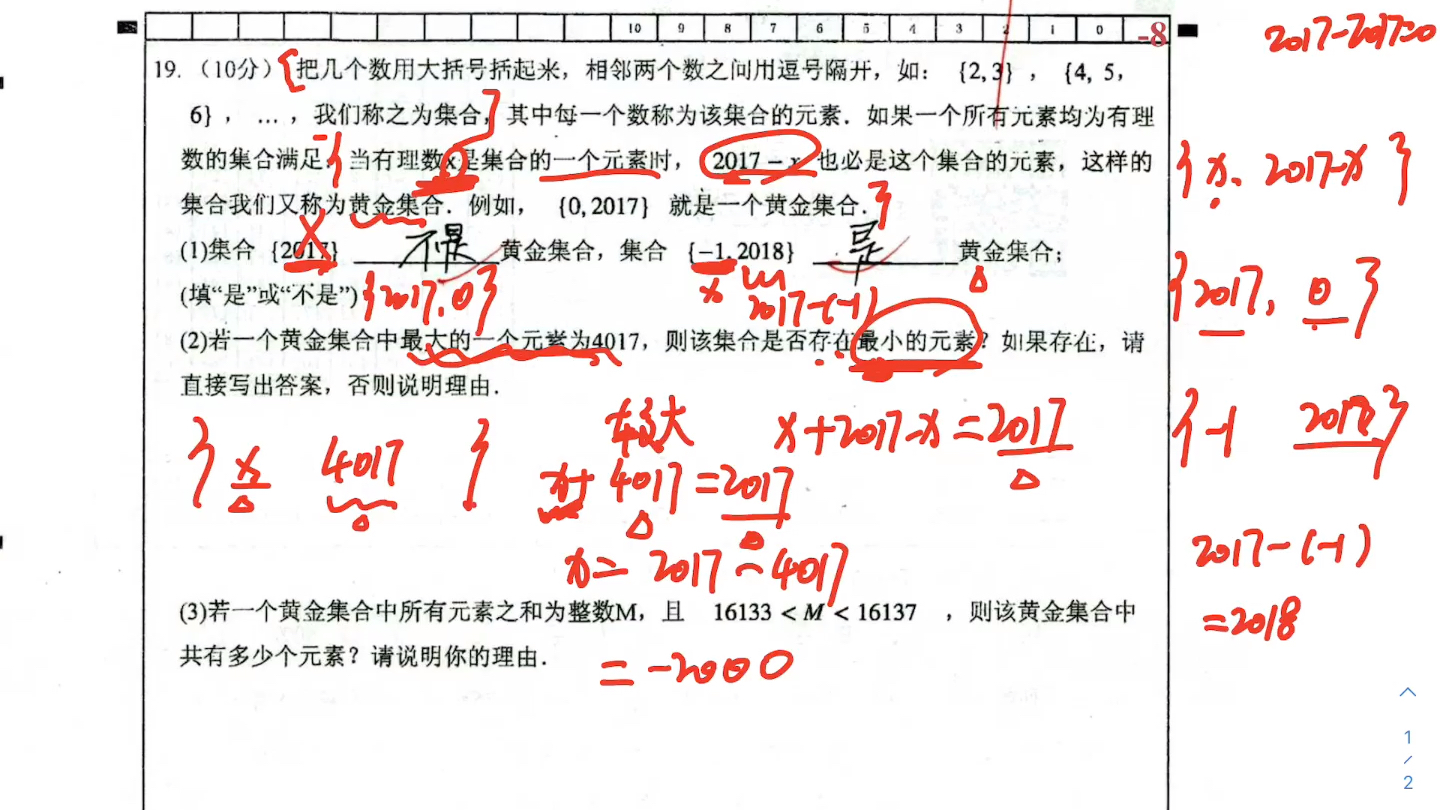 10 9 8 7 6 5 4 3 2 1 0
-8
2017-2017=0
19.（10分）把几个数用大括号括起来，相邻两个数之间用逗号隔开，如：{2,3}，{4, 5,
6}，…，我们称之为集合，其中每一个数称为该集合的元素．如果一个所有元素均为有理
数的集合满足：当有理数x是集合的一个元素时，2017－x也必是这个集合的元素，这样的
{x. 2017-x}
集合我们又称为黄金集合．例如，{0,2017}就是一个黄金集合．
x
(1)集合{2017} 不是 黄金集合，集合{−1,2018} 是 黄金集合；
(填“是”或“不是”)
{2017, 0}
x 2017-(-1)
{2017, 0}
(2)若一个黄金集合中最大的一个元素为4017，则该集合是否存在最小的元素？如果存在，请
直接写出答案，否则说明理由．
{x 4017}
较大
x+2017-x=2017
{-1 2018}
x+4017=2017
x=2017-4017
2017-(-1)
=2018
(3)若一个黄金集合中所有元素之和为整数M，且 16133 < M < 16137 ，则该黄金集合中
共有多少个元素？请说明你的理由．
=-2000
1/2